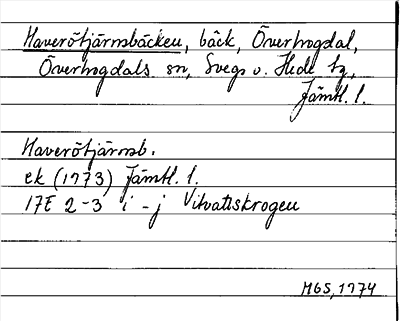 Haverötjärnsbäcken, bäck, Överhogdal,
Överhogdals sn, Svegs o. Hede tg,
Jämtl. l.
Haverötjärnsb.
ek (1973) Jämtl. l.
17E 2-3 i-j Vitvattskrogen
MGS, 1974